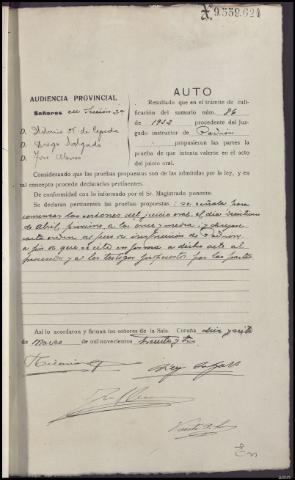 9.559.621
AUTO
AUDIENCIA PROVINCIAL
Señores en Sección 2ª
D.
D. Diego Salgado
D. José
Resultado que en el trámite de cali-
ficación del sumario núm. 86
de 1932 procedente del Juz-
gado instructor de Padrón
propusieron las partes la
prueba de que intenta valerse en el acto
del juicio oral.
Considerando que las pruebas propuestas son de las admitidas por la ley, y en
tal concepto procede declararlas pertinentes.
De conformidad con lo informado por el Sr. Magistrado ponente.
Se declaran pertinentes las pruebas propuestas: se señala para
comenzar las sesiones del juicio oral el día
de Abril próximo, a las once y media; y diríjase
carta orden al Juez de instrucción de Padrón
a fin de que se cite en forma a dicho acto al
procesado y a los testigos propuestos por las partes.
Así lo acordaron y firman los señores de la Sala. Coruña
de Marzo de mil novecientos treinta y